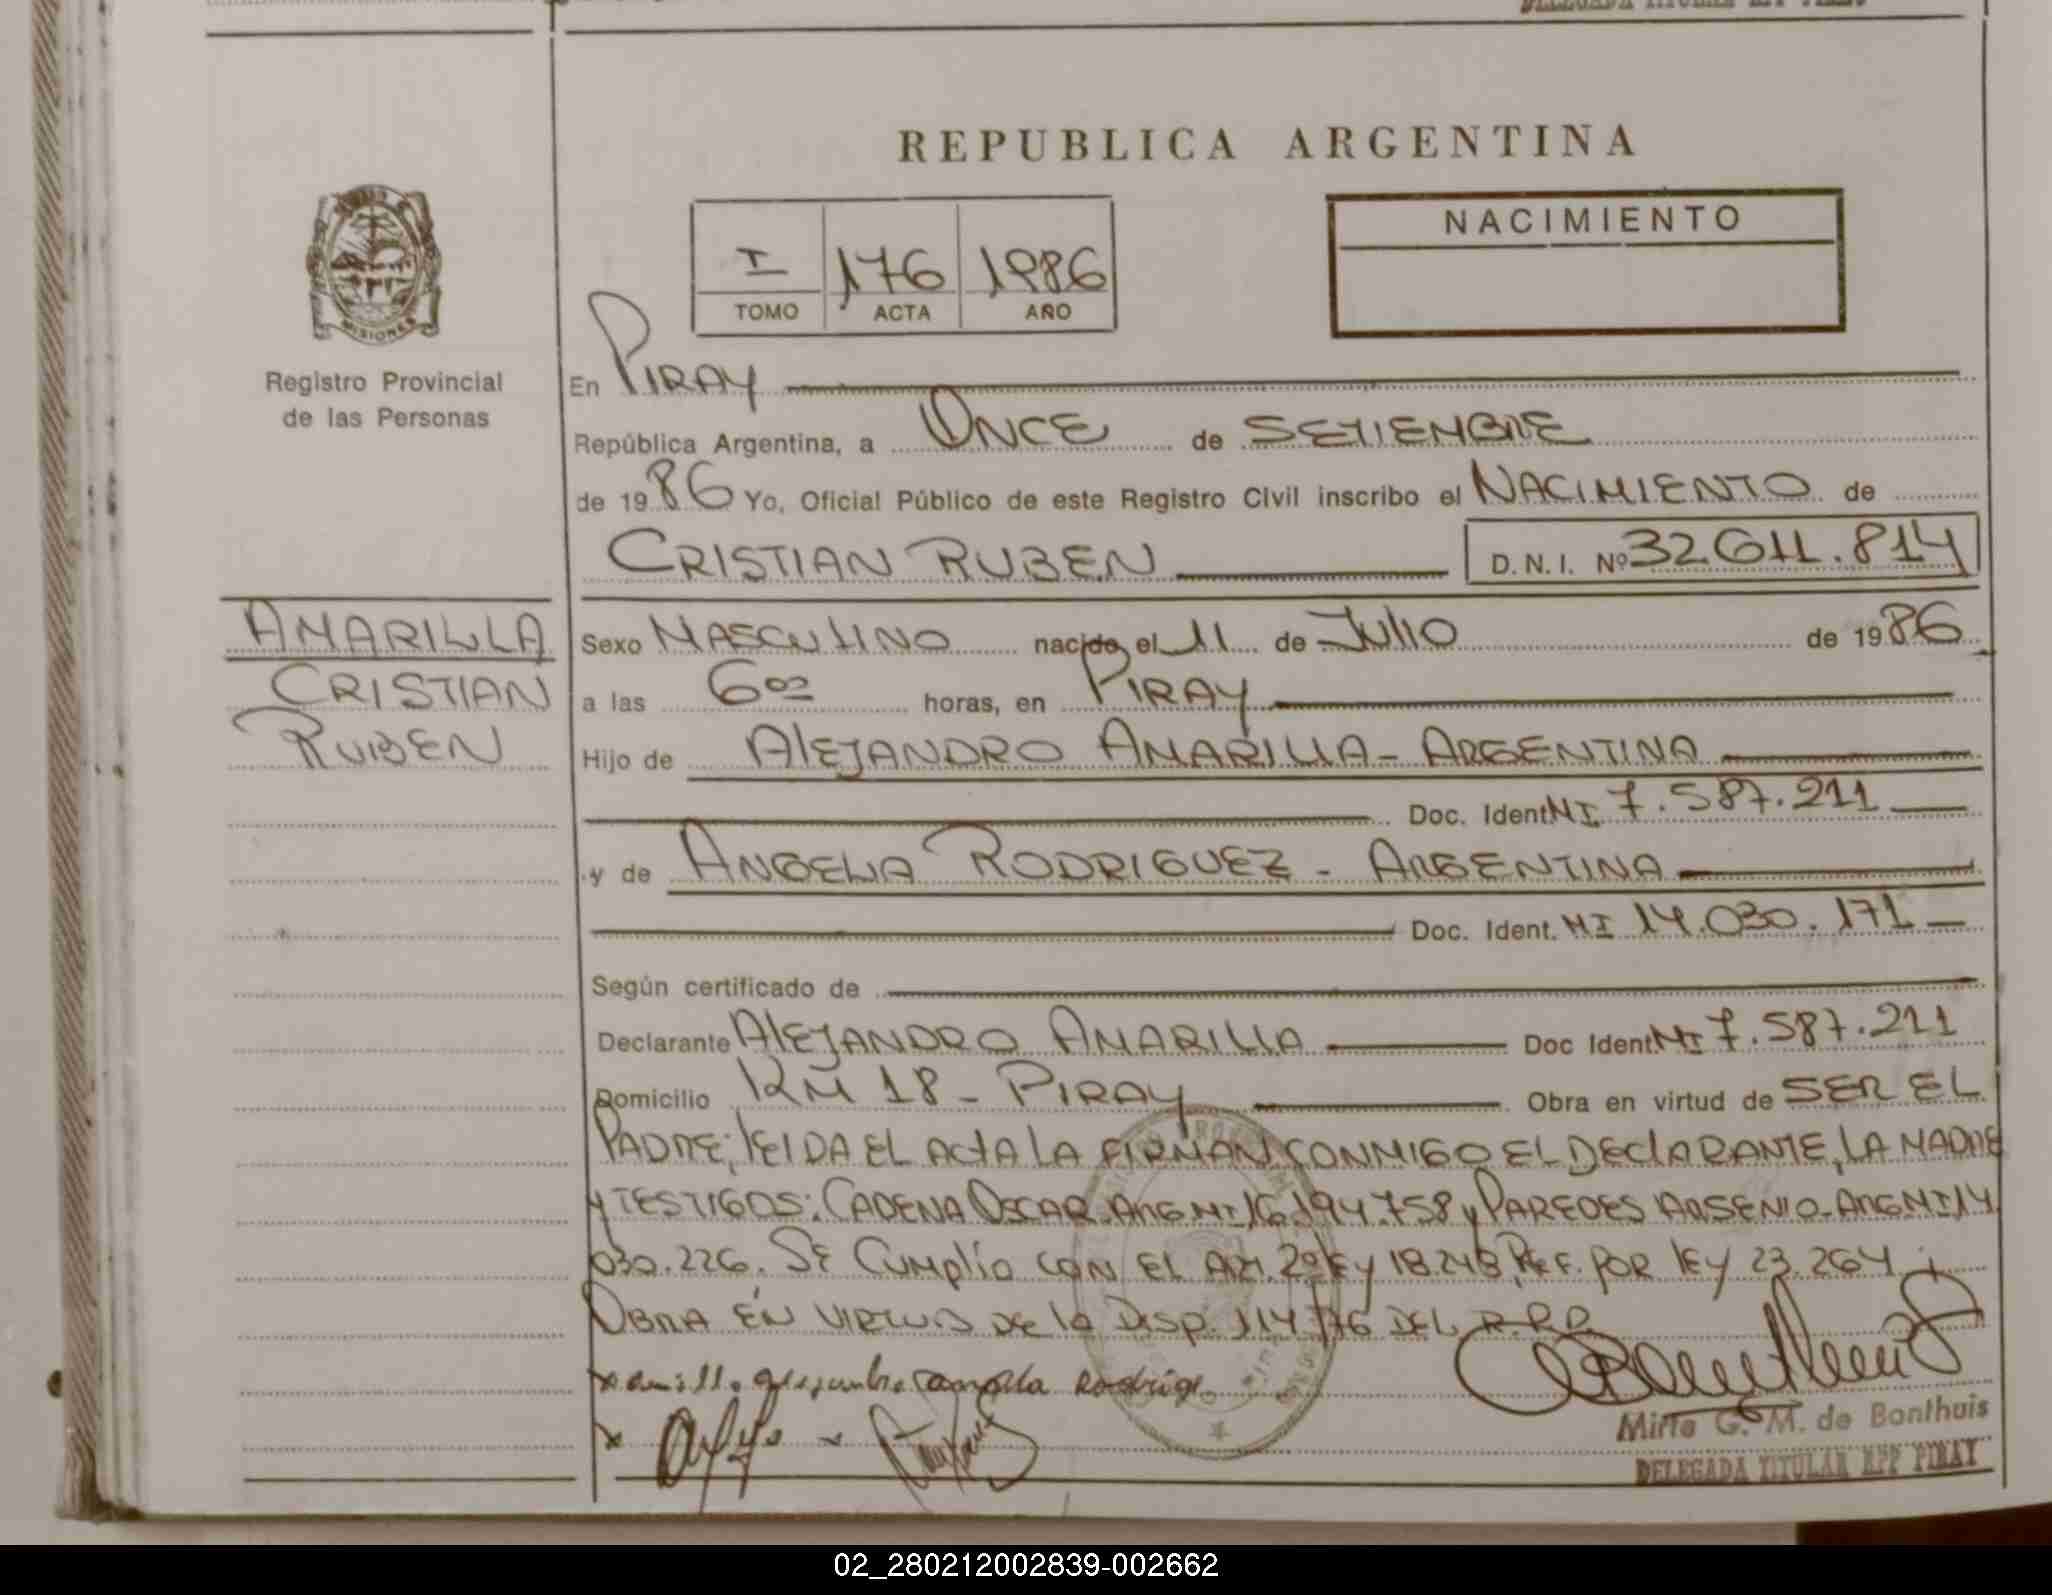 REPUBLICA ARGENTINA
NACIMIENTO
I 176 1986
TOMO ACTA AÑO
MISIONES
Registro Provincial
de las Personas
En PIRAY
República Argentina, a ONCE de SETIEMBRE
de 1986 Yo, Oficial Público de este Registro Civil inscribo el NACIMIENTO de
CRISTIAN RUBEN D.N.I. Nº 32.611.814
AMARILLA
CRISTIAN
RUBEN
Sexo MASCULINO nacido el 11 de JULIO de 1986
a las 6 00 horas, en PIRAY
Hijo de ALEJANDRO AMARILLA - ARGENTINA
Doc. Ident. MI 7.587.211
y de ANGELIA RODRIGUEZ - ARGENTINA
Doc. Ident. MI 14.030.171
Según certificado de
Declarante ALEJANDRO AMARILLA Doc Ident. MI 7.587.211
Domicilio KM 18 - PIRAY Obra en virtud de SER EL
PADRE; LEIDA EL ACTA LA FIRMAN CONMIGO EL DECLARANTE, LA MADRE
Y TESTIGOS: CADENA OSCAR-ARG MI 16.194.758 y PAREDES ARSENIO-ARG MI 14
030.226. SE CUMPLIO CON EL ART. 2º LEY 18.248, REF. POR LEY 23.264
OBRA EN VIRTUD DE la DISP. 114/76 DEL R.P.P.
Mirta G. M. de Bonthuis
DELEGADA TITULAR RPP PIRAY
02_280212002839-002662